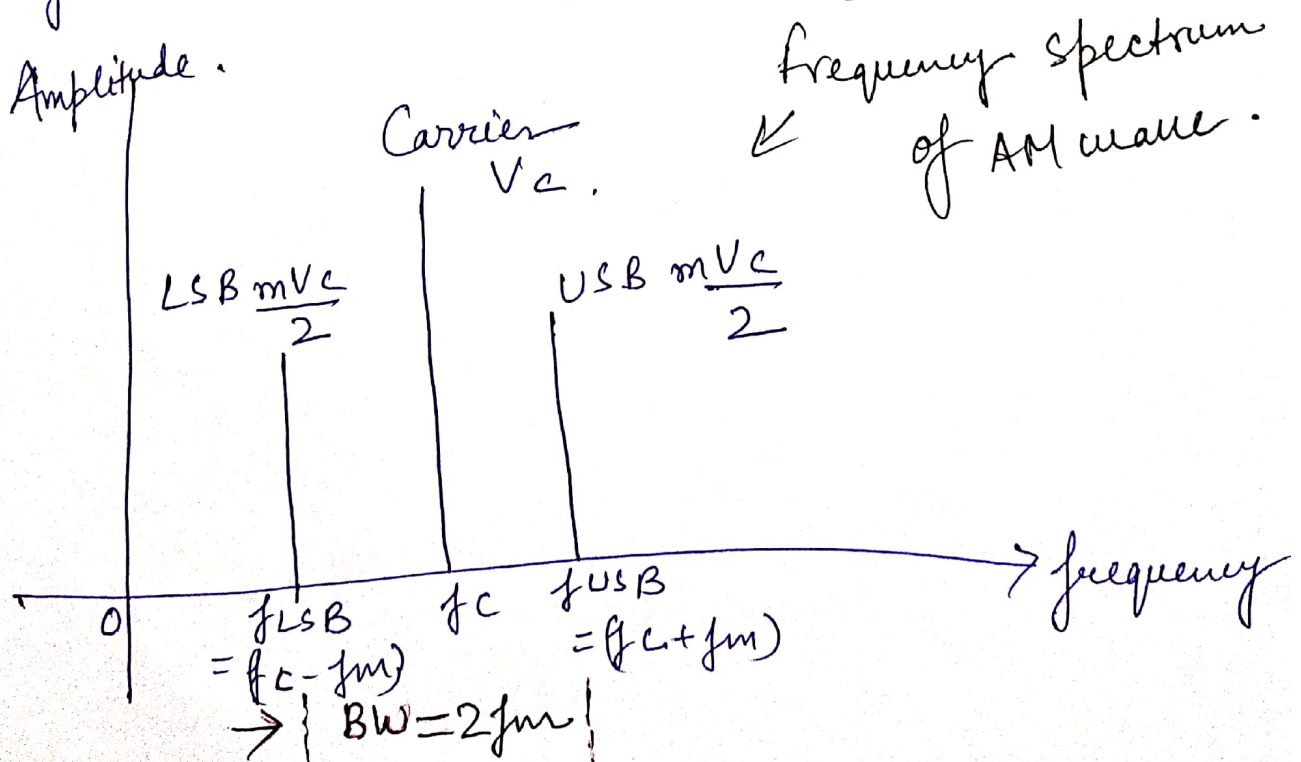 Amplitude.
frequency spectrum
of AM wave.
Carrier
Vc.
LSB mVc/2
USB mVc/2
0
fLSB
= (fc - fm)
fc
fUSB
= (fc + fm)
→ frequency
→ BW=2fm